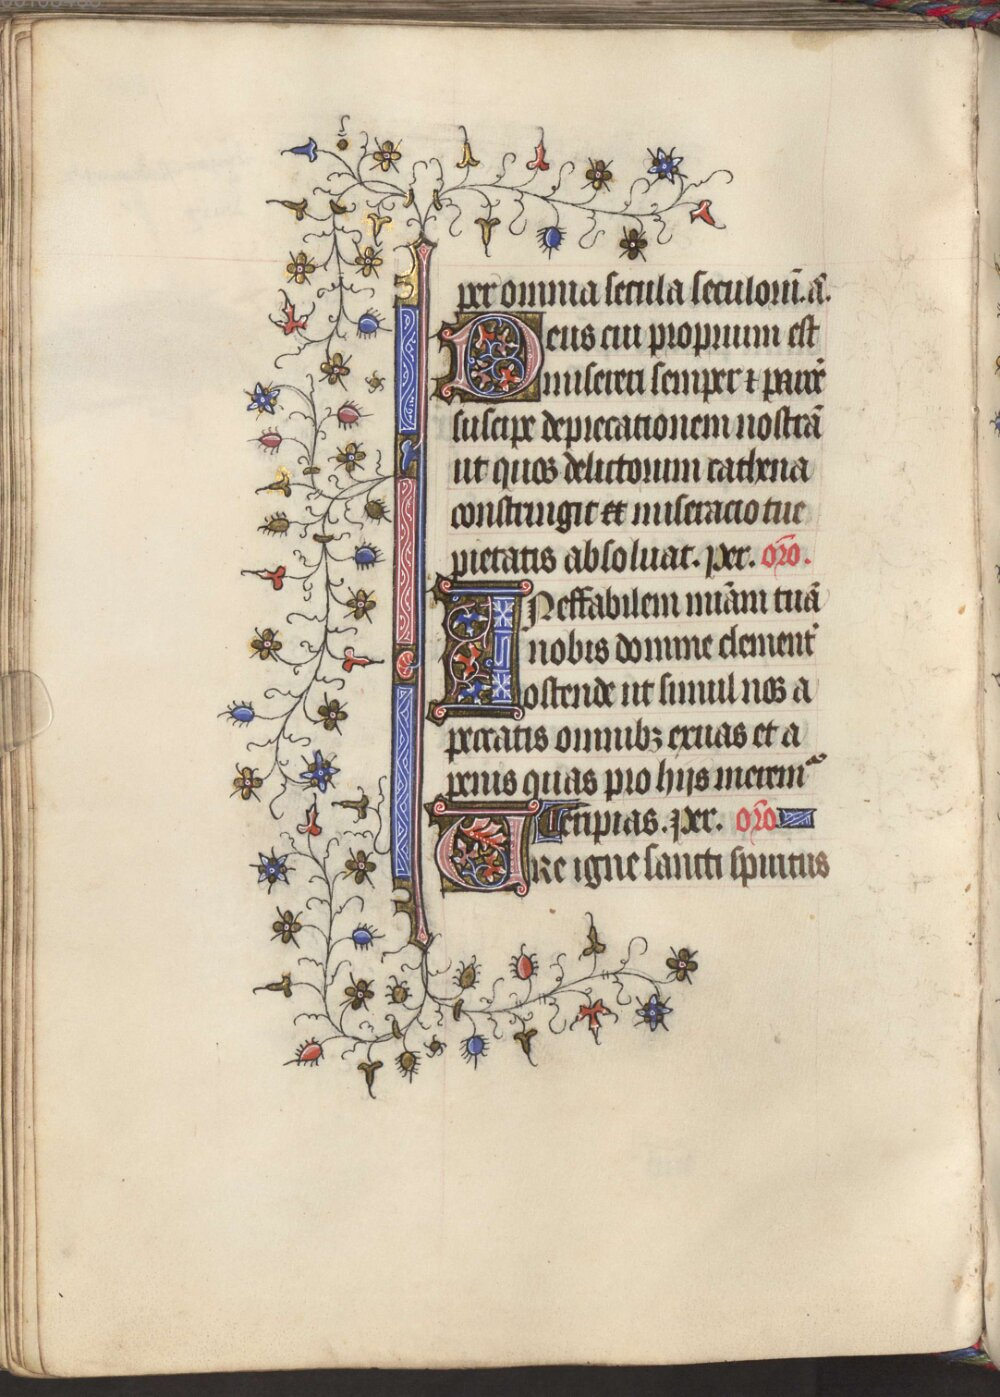 per omnia secula seculoru̅. a̅.
Deus cui proprium est
misereri semper ⁊ parce̅
suscipe deprecationem nostra̅
ut quos delictorum cathena
constringit et miseracio tue
pietatis absoluat. per. or̅o.
INeffabilem mi̅am tua̅
nobis domine clement̅
ostende ut simul nos a
peccatis omnibꝫ exuas et a
penis quas pro hijs merem᷒
Eripias. per. or̅o
URe igne sancti spiritus